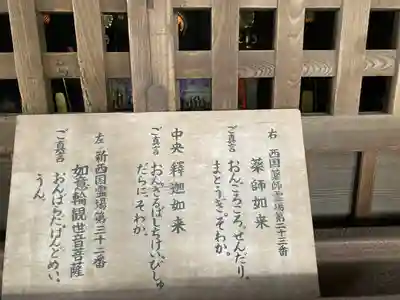 右 西国薬師霊場第二十三番
薬師如来
ご真言 おんころころ、せんだり、
まとうぎ、そわか。
中央 釋迦如来
ご真言 おんさるばしちけいびしゅ
だらに、そわか。
左 新西国霊場第三十二番
如意輪観世音菩薩
ご真言 おんばらだ、はんどめい、
うん